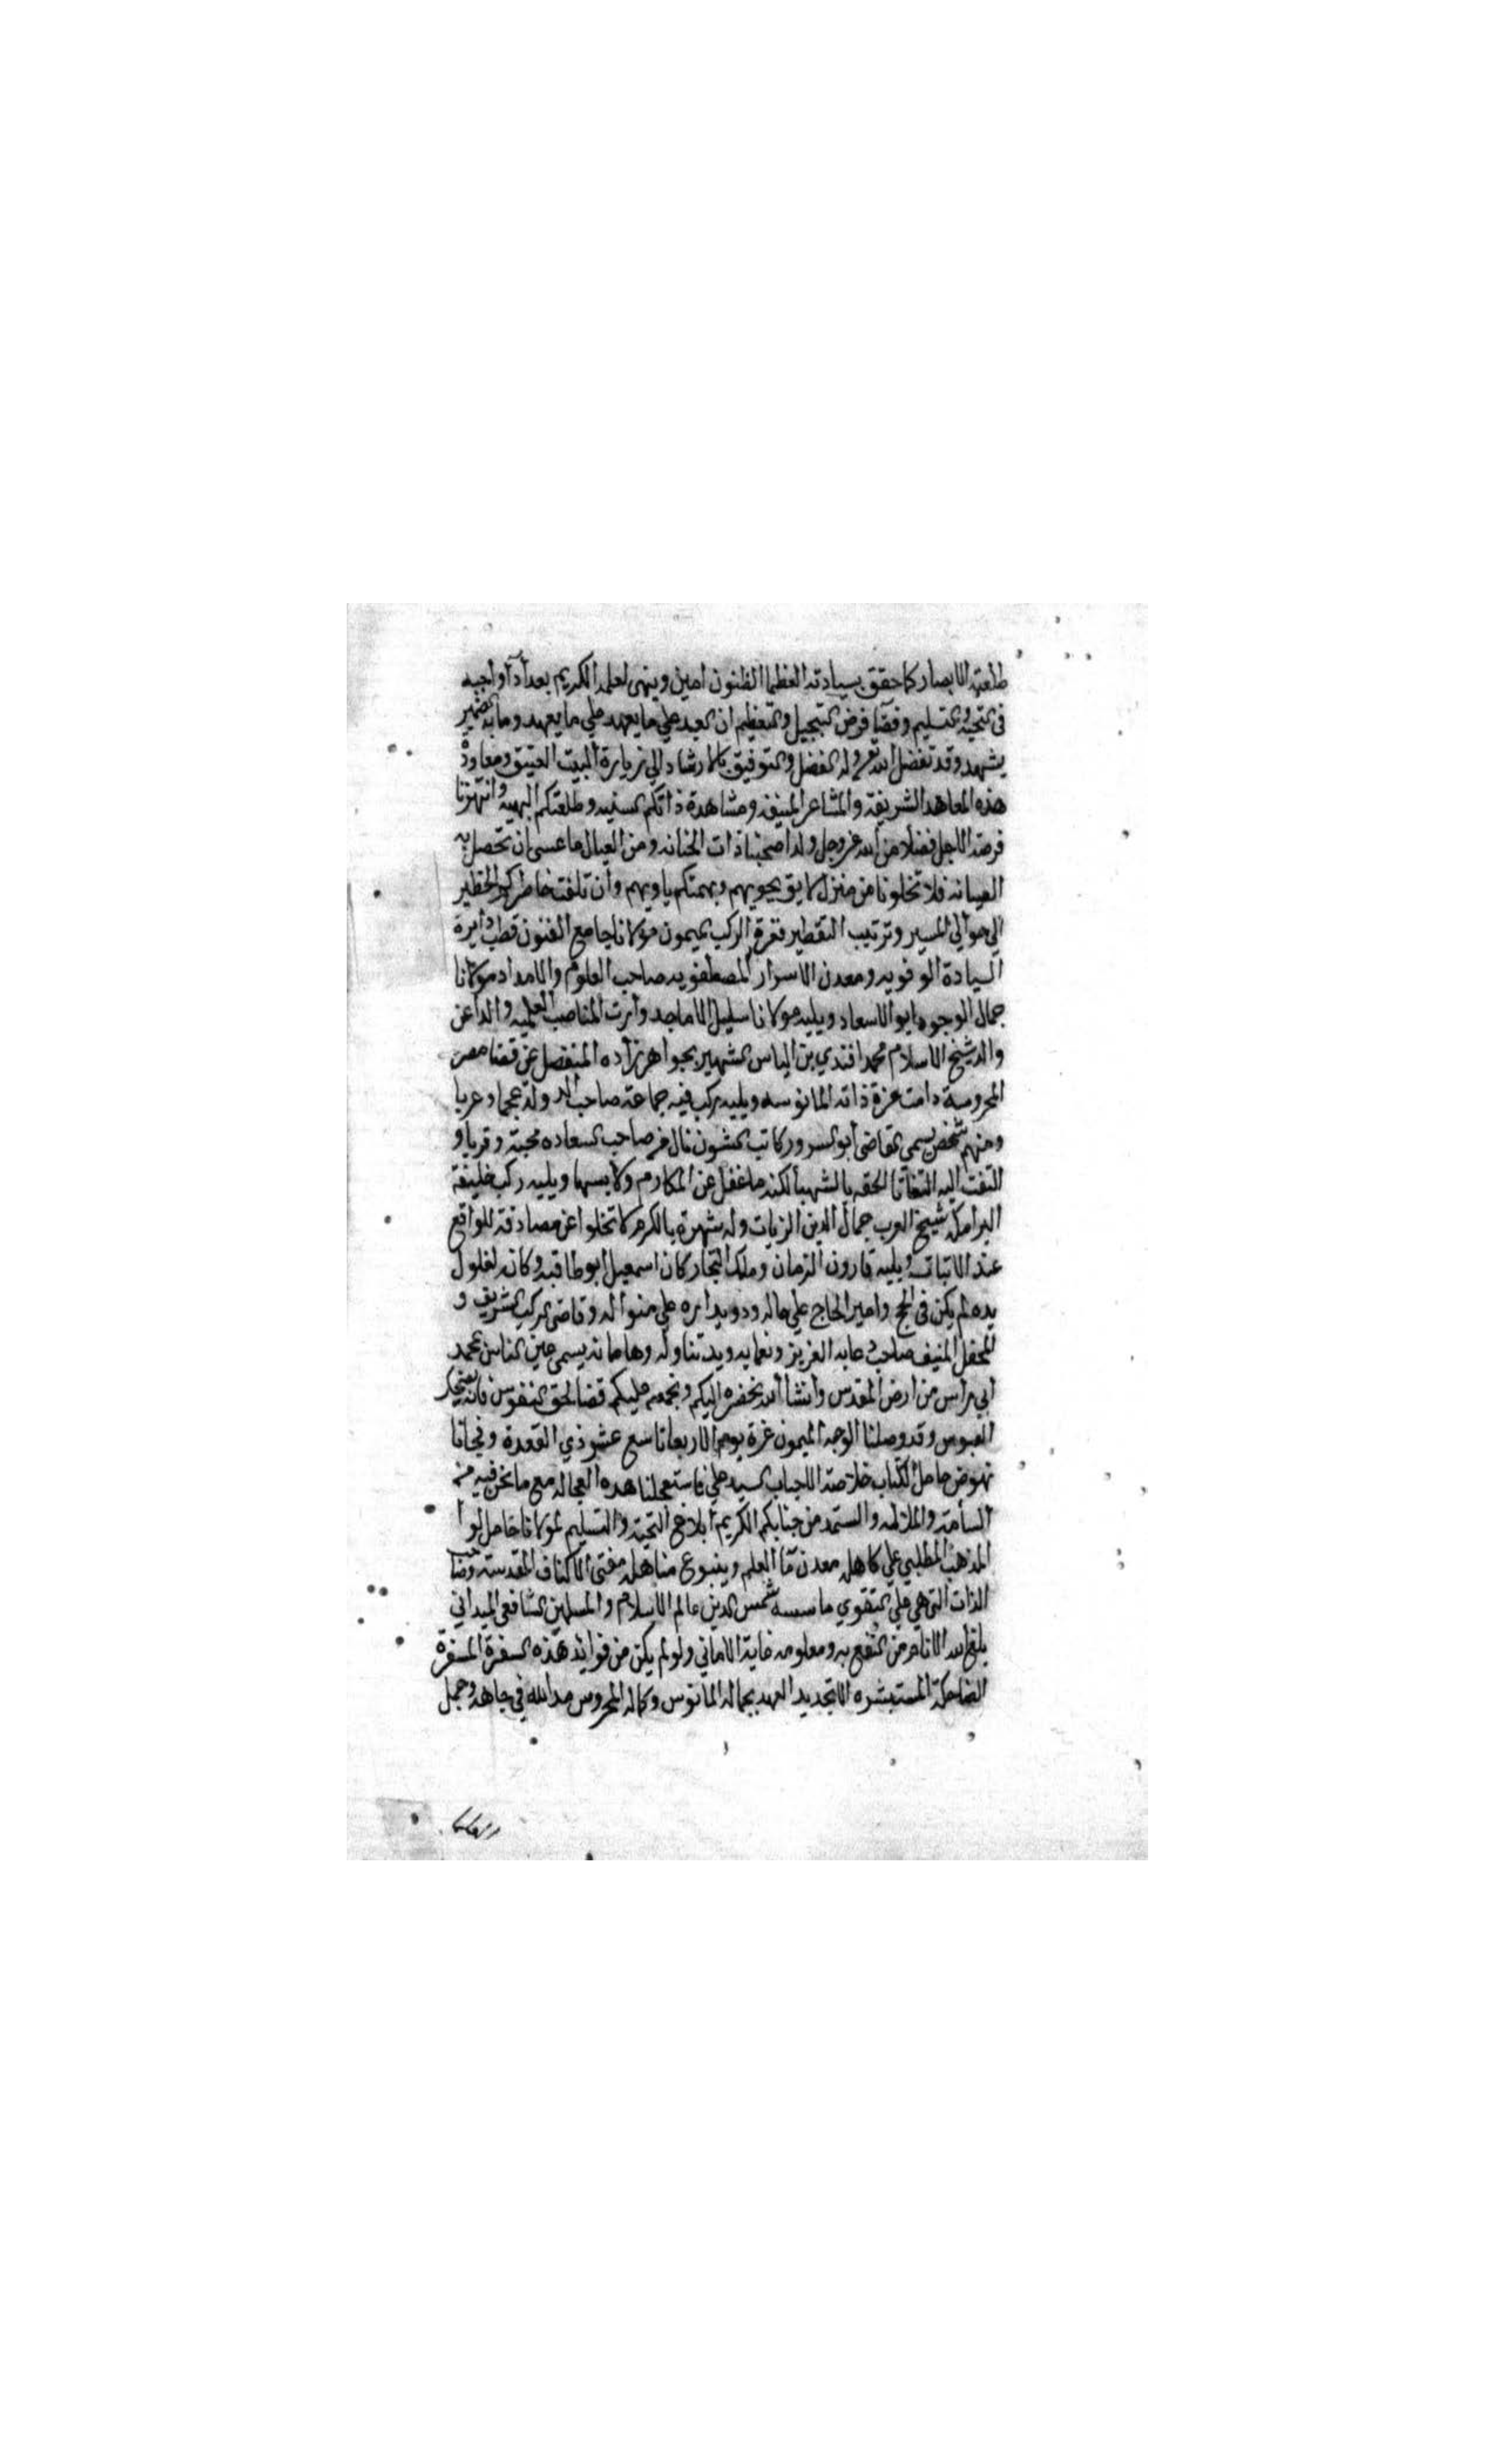 طلعته الابصار كما حقق بسيادته العظما الظنون امين وينهى لعلمه الكريم بعد أدآ واجبه
فى التحية والتسليم وقضآ فرض التبجيل والتعظيم ان العبد على ما يعهد على ما يعهد وما به الضمير
يشهد وقد تفضل الله وله الفضل والتوفيق بالارشاد الي زيارة البيت العتيق ومعاودة
هذه المعاهد الشريفة والمشاعر المنيفه ومشاهدة ذاتكم السنيه وطلعتكم البهيه وانتهزنا
فرصة الاجل فضلا من الله عز وجل ولذا صحبنا ذات الخانه ومن العيال ما عسى ان تحصل به
الصيانه فلا تخلونا من منزل لايق يحويهم وبهمتكم ياويهم وأن تلفت خاطركم الخطير
الي حوالي المسير وترتيب التقطير فغرة الركب الميمون مولانا جامع الفنون قطب دايرة
السيادة الوفويه ومعدن الاسرار المصطفويه صاحب العلوم والامداد مولانا
جمال الوجوه ابو الاسعاد ويليه مولانا سليل الاماجد وارث المناصب العلميه والدا عن
والد شيخ الاسلام محمد افندي بن الياس الشهير بجواهر زاده المنفصل عن قضا مصر
المحروسة دامت عزة ذاته المانوسه ويليه ركب فيه جماعة صاحب الدولة عجما وعربا
ومنهم شخص يسمى القاضى أبو السرور كاتب الشون نال من صاحب السعاده محبة وقربا و
التفت اليه التفاتا الحقه بالشهبا لكنه ما غفل عن المكارم ولا سها ويليه ركب خليفة
البرامكة شيخ العرب جمال الدين الزيات وله شهرة بالكرم لا تخلوا عن مصادفة للواقع
عند الاثبات ويليه قارون الزمان وملك التجار كان اسمعيل ابو طاقيه وكانه لغلول
يده لم يكن فى الحج وامير الحاج علي حاله ودويداره على منواله وقاضى الركب الشريف و
المحفل المنيف صاحب جابه العزيز ونعمايه ويد تناوله وهامانه يسمى عين الناس محمد
ابي راس من ارض المقدس وانشا الله نحضره اليكم ونجمعه عليكم قضا لحق النفوس فانه يضحك
العبوس وقد وصلنا الوجه الميمون غرة يوم الاربعا تاسع عشر ذي القعدة وفجانا
نهوض حامل الكتاب خلاصة الاحباب السيد علي فاستعجلنا هذه العجاله مع ما نحن فيه من
السأمة والملاله والمستمد من جنابكم الكريم ابلاغ التحية والتسليم لمولانا حامل لوا
المذهب المطلبي علي كاهله معدن العلم وينبوع مناهله مفتي الاكناف المقدسة وصاحب
الذات التي هي علي التقوي ماسسه شمس الدين عالم الاسلام والمسلمين الشافعي الميداني
بلغ الله الانام من النفع به وعلومه غاية الاماني ولو لم يكن من فوايد هذه السفرة المسفرة
الضاحكة المستبشره الا تجديد العهد بجماله المانوس وكماله المحروس مد الله في جاهه وجمل